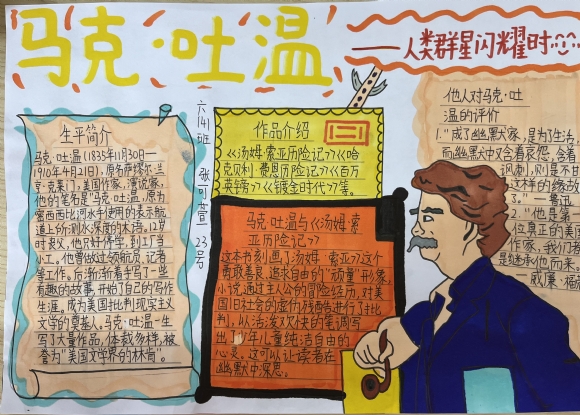 马克·吐温
——人类群星闪耀时
六(4)班 张可萱 23号
生平简介
马克·吐温(1835年11月30日—
1910年4月21日),原名萨缪尔·兰
亨·克莱门,美国作家、演说家,
他的笔名是"马克·吐温",原为
密西西比河水手使用的表示航
道上所测水深度的术语。12岁
时丧父,他只好停学,到工厂当
小工。他曾做过领航员、记者
等工作。后渐渐着手写了一些
有趣的故事,开始了自己的写作
生涯。成为美国批判现实主义
文学的奠基人。马克·吐温一生
写了大量作品,体裁多样,被
誉为"美国文学界的林肯"。
作品介绍
《汤姆·索亚历险记》《哈
克贝利·费恩历险记》《百万
英镑》《镀金时代》等。
马克·吐温与《汤姆·索
亚历险记》
这本书刻画了汤姆·索亚这个
勇敢善良、追求自由的"顽童"形象,
小说通过主人公的冒险经历,对美
国旧社会的虚伪、残酷进行了批
判,以活泼欢快的笔调写
出了少年儿童纯洁自由的
心灵。这可以让读者在
幽默中深思。
他人对马克·吐
温的评价
1."成了幽默家,是为了生活,
而幽默中又含着哀怨,含着
讽刺,则是不甘
这样的缘故
。"——鲁迅
2."他是第一
位真正的美国
作家,我们都
是继承他而来。"
——威廉·福